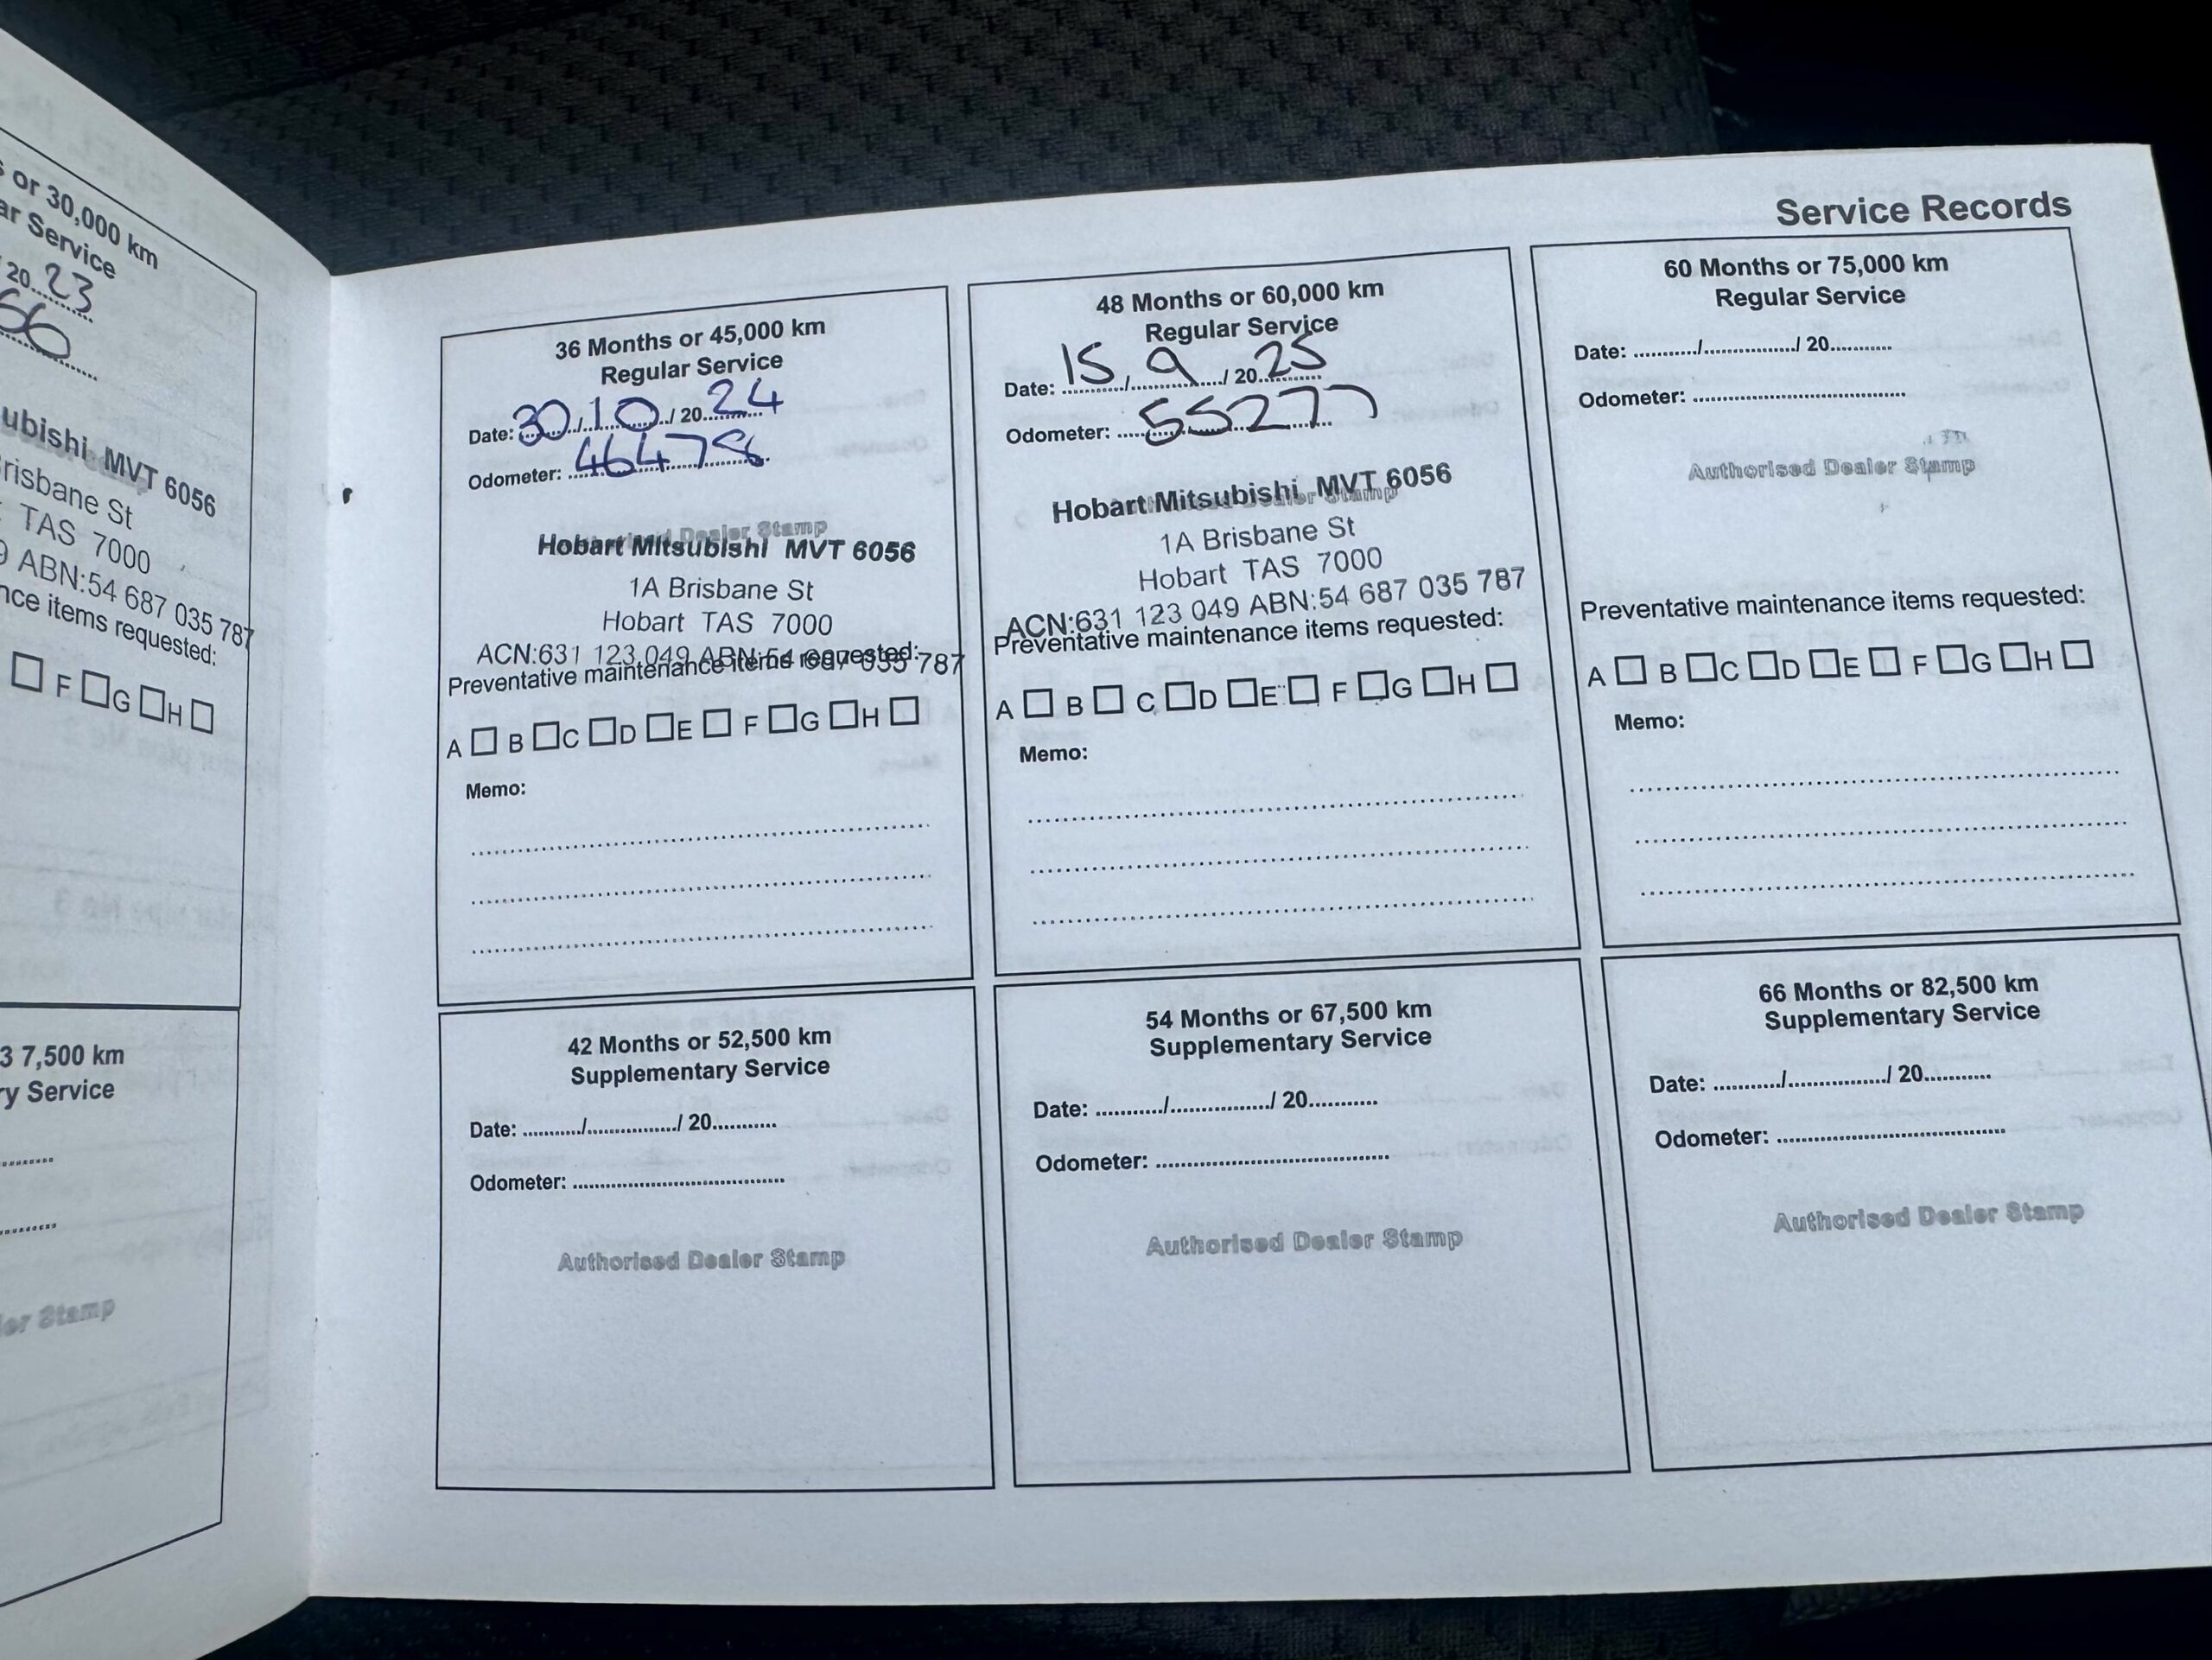 or 30,000 km
Service
20 23
66
MVT 6056
Brisbane St
TAS 7000
ABN:54 687 035 787
items requested:
F G H
7,500 km
Service
Stamp
Service Records
36 Months or 45,000 km
Regular Service
Date: 30/10/2024
Odometer: 46478
Authorised Dealer Stamp
Hobart Mitsubishi MVT 6056
1A Brisbane St
Hobart TAS 7000
ACN:631 123 049 ABN:54 687 035 787
Preventative maintenance items requested:
A B C D E F G H
Memo:
48 Months or 60,000 km
Regular Service
Date: 15/9/2025
Odometer: 55277
Authorised Dealer Stamp
Hobart Mitsubishi MVT 6056
1A Brisbane St
Hobart TAS 7000
ACN:631 123 049 ABN:54 687 035 787
Preventative maintenance items requested:
A B C D E F G H
Memo:
60 Months or 75,000 km
Regular Service
Date: ........../................/ 20...........
Odometer: ....................................
Authorised Dealer Stamp
Preventative maintenance items requested:
A B C D E F G H
Memo:
42 Months or 52,500 km
Supplementary Service
Date: ........../................/ 20...........
Odometer: ....................................
Authorised Dealer Stamp
54 Months or 67,500 km
Supplementary Service
Date: ........../................/ 20...........
Odometer: ....................................
Authorised Dealer Stamp
66 Months or 82,500 km
Supplementary Service
Date: ........../................/ 20...........
Odometer: ....................................
Authorised Dealer Stamp